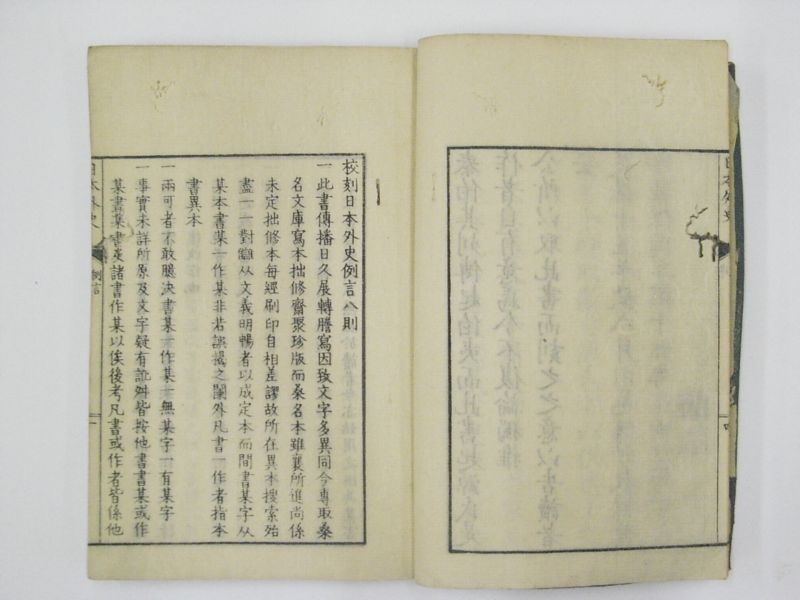 校刻日本外史例言八則
一此書傳播日久展轉謄寫因致文字多異同今專取桑
名文庫寫本拙修齋聚珍版而桑名本雖襄所進尚係
未定拙修本每經刷印自相差謬故所在異本搜索殆
盡一一對讎從文義明暢者以成定本而間書某字从
某本書某一作某非若誤
之闌外凡書一作者指本
書異本
一兩可者不敢臆決書某一作某一無某字一有某字
一事實未詳所原及文字疑有訛舛皆按他書書某或作
某書某書及諸書作某以俟後考凡書或作者皆係他
日本外史
例言
一
日本外史